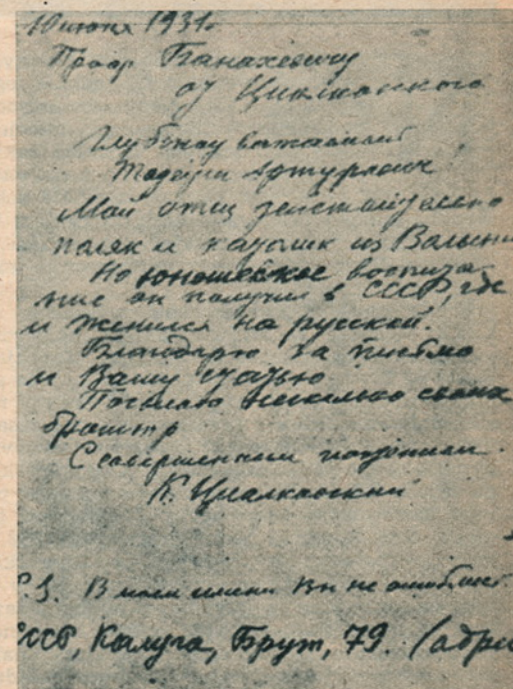 10 июня 1931 г.
Проф Банахевичу
от Циолковского
Глубокоуважаемый
Тадеуш Артурович
Мой отец действительно
поляк и католик из Волыни
Но юношеское воспита-
ние он получил в СССР, где
и женился на русской.
Благодарю за письмо
и Вашу статью
Посылаю несколько своих
брошюр
С совершенным почтением
К. Циолковский
P.S. В моем имени Вы не ошиблись.
СССР, Калуга, Брут, 79. (адрес